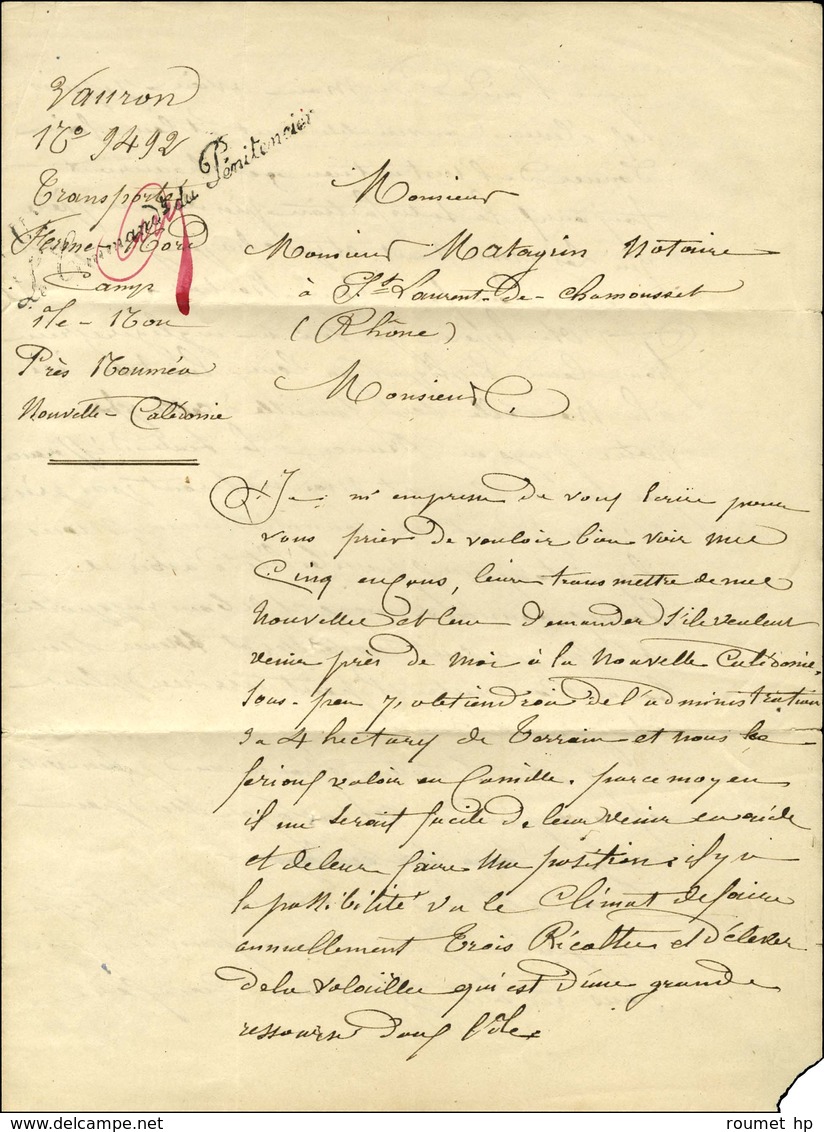 Vauron
No 9492
Transporté
Ferme-Nord
Camp
île-Nou
Près Nouméa
Nouvelle-Calédonie
Le Commandt du Pénitencier
Monsieur
Monsieur Matagrin Notaire
à St Laurent-de-Chamousset
(Rhône)
Monsieur
Je m'empresse de vous écrire pour
vous prier de vouloir bien voir mes
Cinq enfans, leur transmettre de mes
Nouvelles et leur demander s'ils veulent
venir près de moi à la Nouvelle Calédonie,
sous-peu j'obtiendrai de l'administration
3 a 4 hectares de Terrain et nous le
ferions valoir en famille. par ce moyen
il me serait facile de leur venir en aide
et de leur faire une position; il y a
la possibilité vu le Climat de faire
annuellement Trois Récoltes et d'élever
de la volailles qui est d'une grande
ressource dans l'île
roumet hp